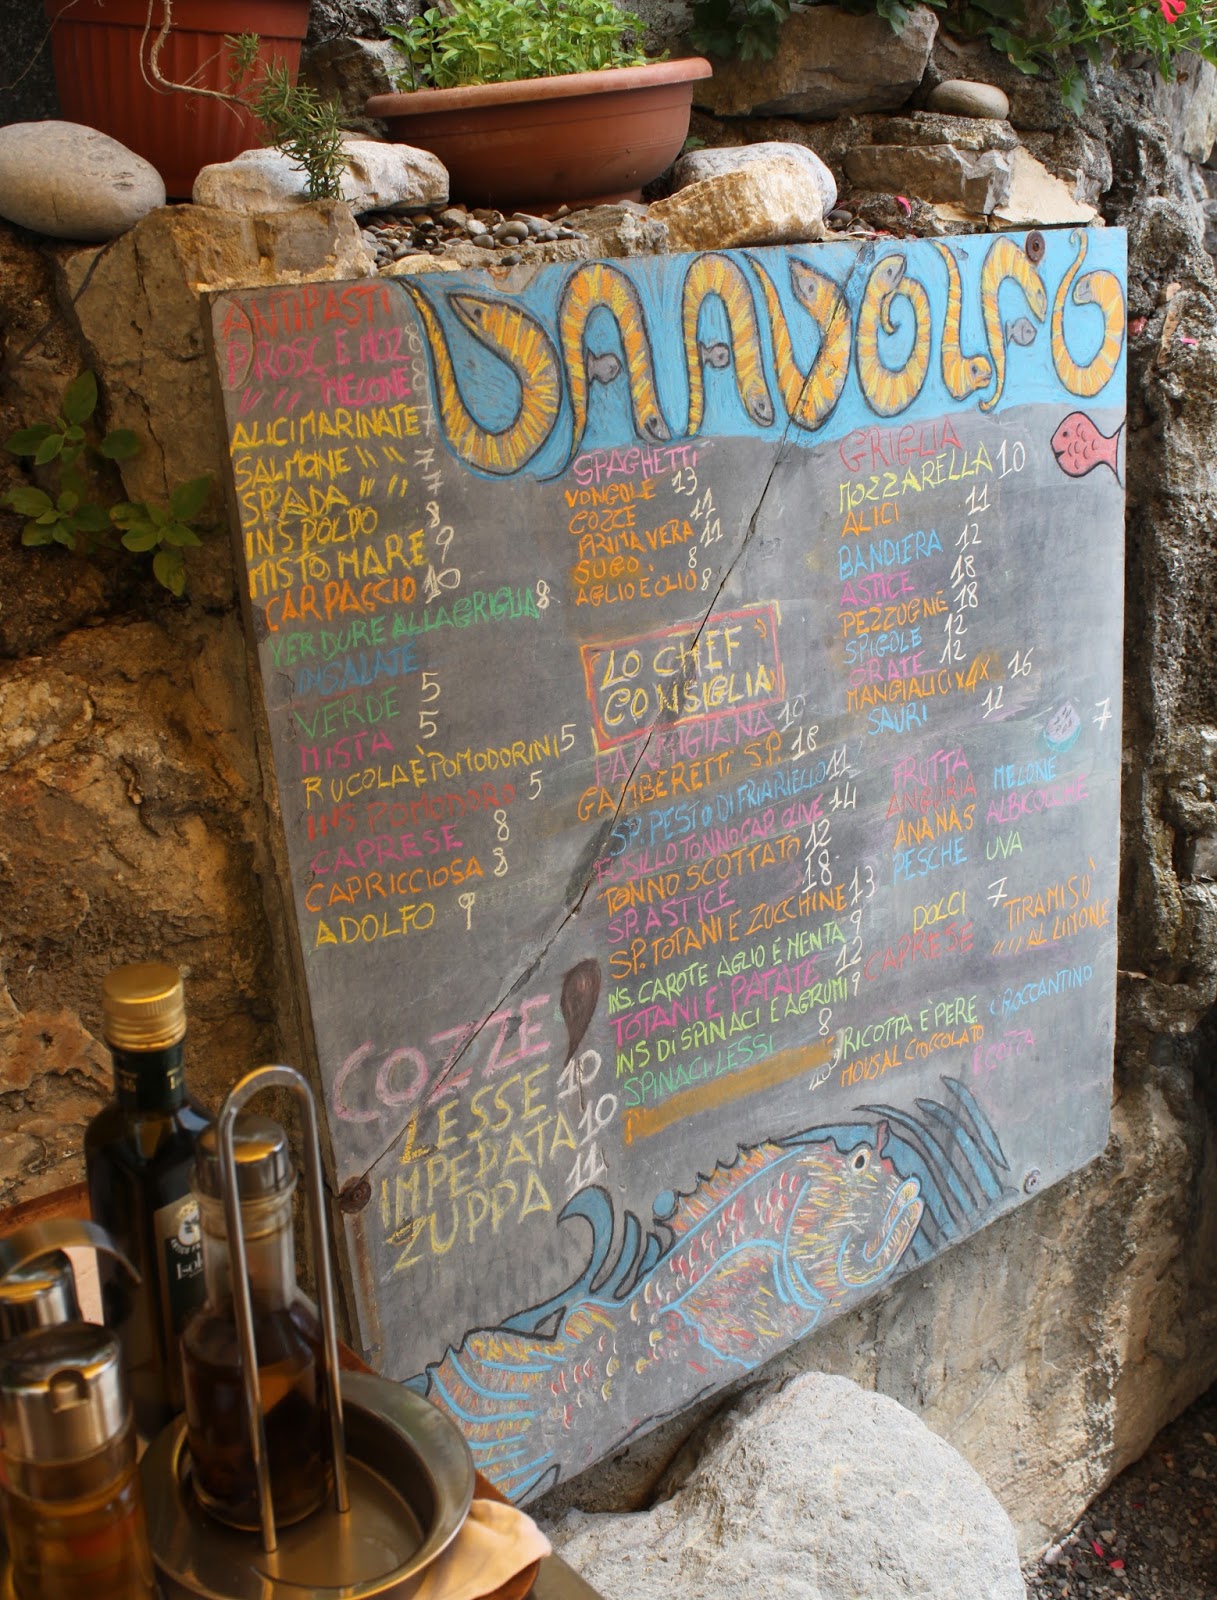 DA ADOLFO
ANTIPASTI
PROSC E MOZ 8
" " MELONE 8
ALICI MARINATE 7
SALMONE " " 7
SPADA " " 7
INS POLPO 8
MISTO MARE 9
CARPACCIO 10
VERDURE ALLA GRIGLIA 8
INSALATE
VERDE 5
MISTA 5
RUCOLA È POMODORINI 5
INS POMODORO 5
CAPRESE 8
CAPRICCIOSA 8
ADOLFO 9
COZZE
LESSE 10
IMPEPATA 10
ZUPPA 11
SPAGHETTI
VONGOLE 13
COZZE 11
PRIMAVERA 11
SUGO 8
AGLIO E OLIO 8
LO CHEF
CONSIGLIA
PARMIGIANA 10
GAMBERETTI SP. 18
SP. PESTO DI FRIARIELLO 11
FUSILLO TONNO CAP. OLIVE 14
TONNO SCOTTATO 12
SP. ASTICE 18
SP. TOTANI E ZUCCHINE 13
INS. CAROTE AGLIO E MENTA 9
TOTANI E PATATE 12
INS DI SPINACI E AGRUMI 9
SPINACI LESSI 8
GRIGLIA
MOZZARELLA 10
ALICI 11
BANDIERA 12
ASTICE 18
PEZZOGNE 18
SPIGOLE 12
ORATE 12
MANGIALICI x4x 16
SAURI 12
7
FRUTTA
ANGURIA MELONE
ANANAS ALBICOCCHE
PESCHE UVA
DOLCI 7
TIRAMISÙ
CAPRESE " " AL LIMONE
RICOTTA È PERE CROCCANTINO
MOUS AL CIOCCOLATO